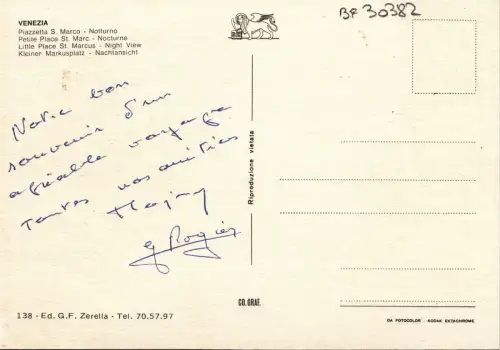 VENEZIA
Piazzetta S. Marco - Notturno
Petite Place St. Marc - Nocturne
Little Place St. Marcus - Night View
Kleiner Markusplatz - Nachtansicht
BF 30382
Notre bon
souvenir d'un
agréable voyage
toutes nos amitiés
g Rogier
Riproduzione vietata
CO. GRAF.
138 - Ed. G.F. Zerella - Tel. 70.57.97
DA FOTOCOLOR . KODAK EKTACHROME